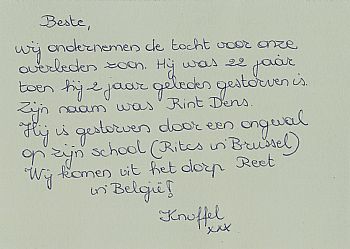 Beste,
wij ondernemen de tocht voor onze
overleden zoon. Hij was 22 jaar
toen hij 2 jaar geleden gestorven is.
Zijn naam was Rint Dens.
Hij is gestorven door een ongeval
op zijn school (Rits in Brussel)
Wij komen uit het dorp Reet
in België!
Knuffel
xxx